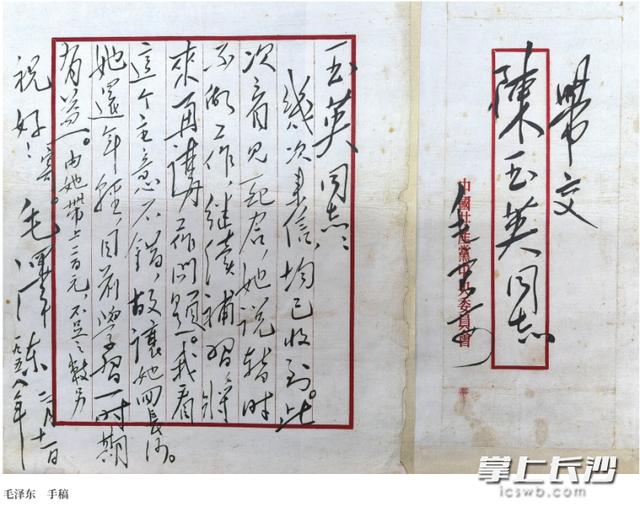 帶交
陳玉英同志
中國共產黨中央委員會
玉英同志：
幾次来信，均已收到。此
次看见，她说暂时
不做工作，继续補習，将
來再講工作问题。我看
这个主意不错，故讓她回長沙。
她還年轻，目前學習一时期
有益。由她帶上百元，不足之數另
寄。
祝好！
毛澤東
一九五八年月十一日
毛泽东 手稿
掌上长沙
icswb.com